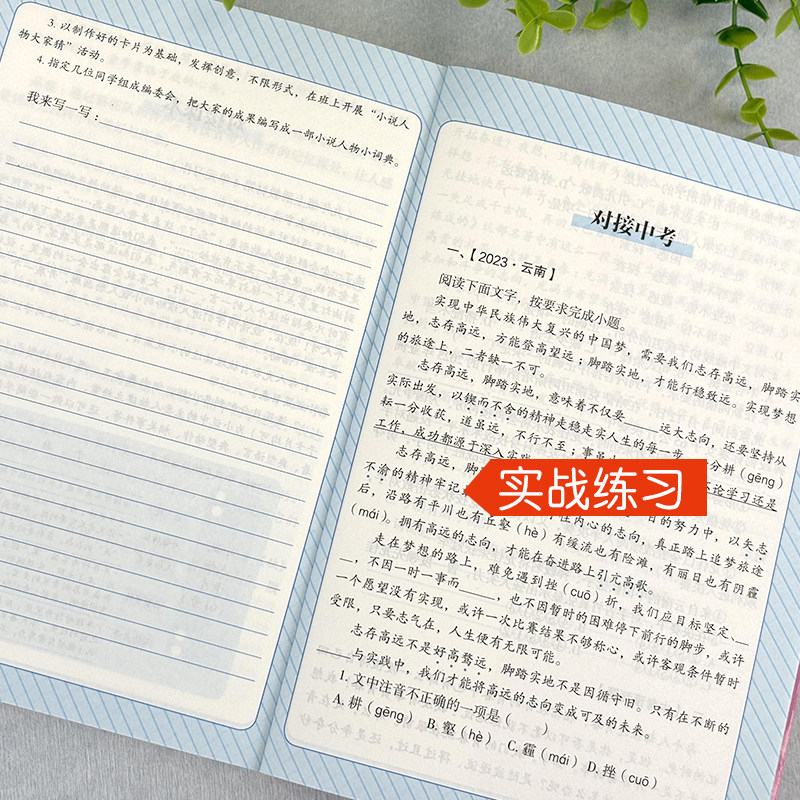 3. 以制作好的卡片为基础，发挥创意，不限形式，在班上开展“小说人
物大家猜”活动。
4. 指定几位同学组成编委会，把大家的成果编写成一部小说人物小词典。
我来写一写：
对接中考
一、【2023·云南】
阅读下面文字，按要求完成小题。
实现中华民族伟大复兴的中国梦，需要我们志存高远，脚踏实
地，志存高远，方能登高望远；脚踏实地，才能行稳致远。实现梦想
的旅途上，二者缺一不可。
志存高远，脚踏实地，意味着不仅要____远大志向，还要坚持从
实际出发，以锲而不舍的精神走稳走实人生的每一步。 分耕（gēng）
耘一分收获，道虽远，不行不至；事虽 论学习还是
工作，成功都源于深入实践
志存高远，脚 日的努力中，以矢志
不渝的精神牢记 住内心的志向，真正踏上追梦旅途
后，沿路有平川也有丘壑（hè）有缓流也有险滩，有丽日也有阴霾
（mái）。拥有高远的志向，才能在奋进路上引亢高歌。
走在梦想的路上，难免遇到挫（cuō）折，我们应目标坚定、__
__，不因一时一事而____，也不因暂时的困难停下前行的脚步，或许
一个愿望没有实现，或许一次比赛结果不够称心，或许客观条件暂时
受限，只要志气在，人生便有无限可能。
志存高远不是好高骛远，脚踏实地不是因循守旧。只有在不断的
____与实践中，我们才能将高远的志向变成可及的未来。
1. 文中注音不正确的一项是（ ）
A. 耕（gēng） B. 壑（hè） C. 霾（mái） D. 挫（cuō）
实战练习